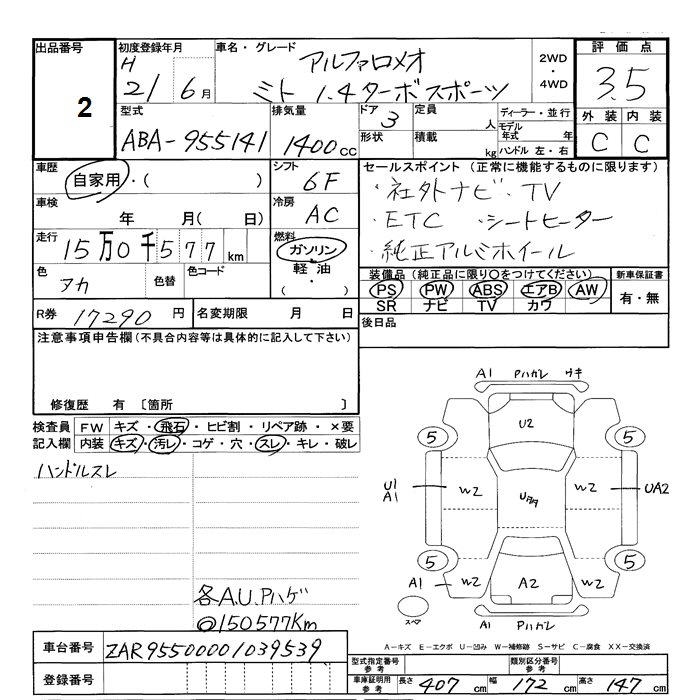 出品番号
2
初度登録年月
H
21 6月
車名・グレード
アルファロメオ
ミト 1.4ターボスポーツ
2WD
・
4WD
評価点
3.5
外装 内装
C C
型式
ABA-955141
排気量
1400cc
ドア
3
形状
定員
人
積載
kg
ディーラー・並行
モデル年式 年
ハンドル 左・右
車歴
自家用・( )
シフト
6F
車検
年 月( 日)
冷房
AC
走行
15万0千577km
燃料
ガソリン
軽油
( ・ )
色
アカ
色替
色コード
R券 17290円
名変期限 月 日
セールスポイント(正常に機能するものに限ります)
・社外ナビ・TV
・ETC ・シートヒーター
・純正アルミホイール
装備品(純正品に限り○をつけてください)
PS PW ABS エアB AW
SR ナビ TV カワ
新車保証書
有・無
後日品
注意事項申告欄(不具合内容等は具体的に記入して下さい)
修復歴 有〔箇所 〕
検査員記入欄
FW キズ・飛石・ヒビ割・リペア跡・×要
内装 キズ・汚レ・コゲ・穴・スレ・キレ・破レ
ハンドルスレ
各A.U.Pハゲ
@150577Km
A1 Pハガレ ワキ
U2
5 5
U1
A1
W2 W2
UA2
5 5
A1 W2 A2 W2 A1
スペア
U Pハガレ
A-キズ E-エクボ U-凹み W-補修跡 S-サビ C-腐食 XX-交換済
車台番号 ZAR95500001039539
登録番号
型式指定番号 参考
類別区分番号 参考
車庫証明用 参考
長さ 407cm 幅 172cm 高さ 147cm